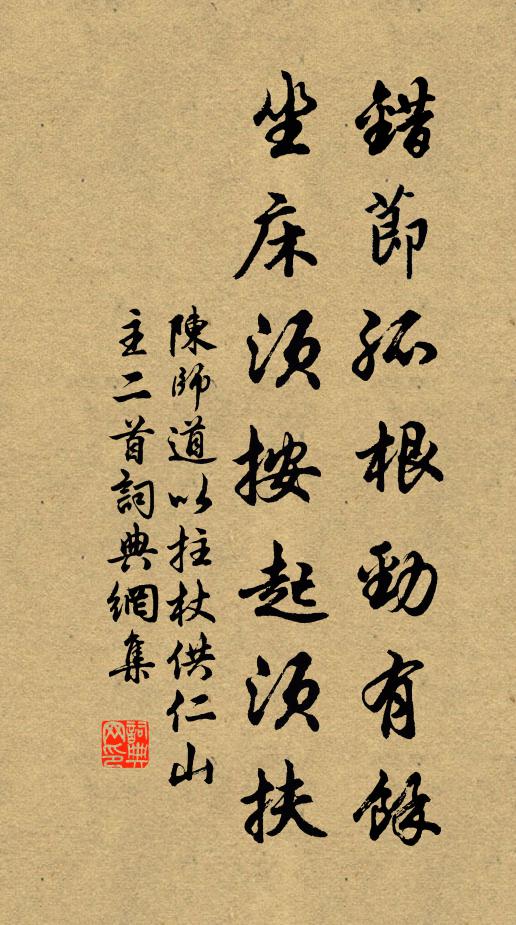 錯節孤根勁有餘
坐床須按起須扶
陳師道以拄杖供仁山
主二首詞典網集
詞典网印